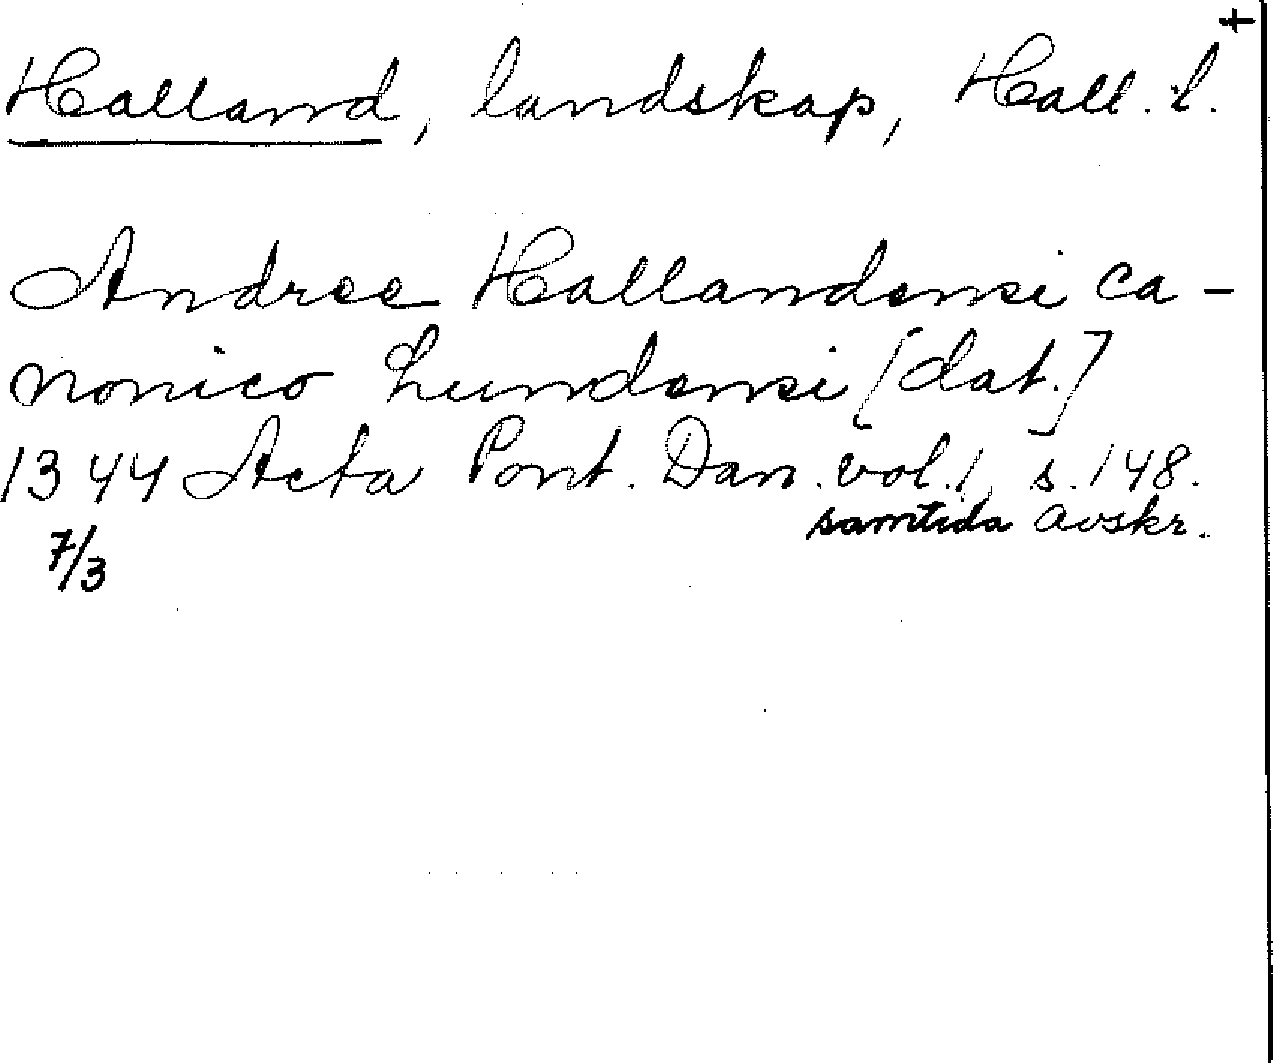 +
Halland, landskap, Hall. l.
Andree Hallandensi ca-
nonico Lundensi [dat.]
1344 Acta Pont. Dan. vol. 1, s. 148.
samtida avskr.
7/3